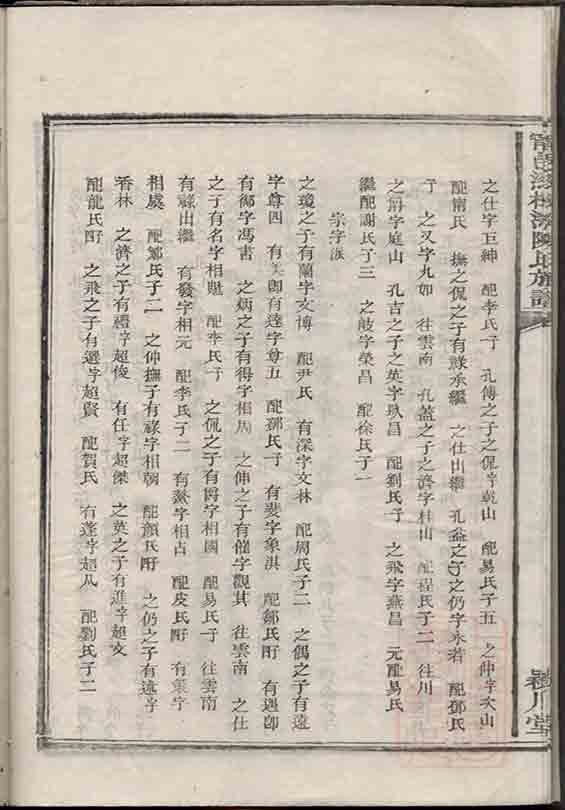 之仕字巨紳 配李氏子 孔傳之子之侃字乾山 配易氏子五 之仲字次山
配甯氏 撫之侃之子有祿承繼 之仕山繼 孔益之子之仍字永若 配鄧氏
子 之又字九如 往雲南 孔益之子之濟字桂山 配程氏子二 往川
之爵字庭山 孔吉之子之英字玖昌 配劉氏子 之飛字燕昌 元配易氏
繼配謝氏子三 之歧字榮昌 配徐氏子一
宗字派
之瓊之子有蘭字文博 配尹氏 有深字文林 配周氏子二 之偶之子有遠
字尊四 有 卽有達字尊五 配鄧氏子 有斐字象淇 配鄒氏 有遇卽
有御字馮書 之炳之子有得字相周 之伸之子有催字觀其 往雲南 之仕
之子有名字相賦 配李氏子 之侃之子有爵字相國 配易氏子 往雲南
有祿出繼 有發字相元 配李氏子二 有猷字相占 配皮氏 有策字
相虞 配鄭氏子二 之仲撫子有祿字相朝 配顏氏 之仍之子有遠字
香林 之濟之子有禮字超俊 有任字超傑 之英之子有進字超文
配龍氏 之飛之子有選字超賢 配賀氏 有蓬字超凡 配劉氏子二
陳氏族譜
川堂